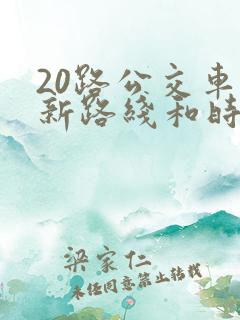 20路公交车
新路线和时
梁家仁
未经同意禁止转载